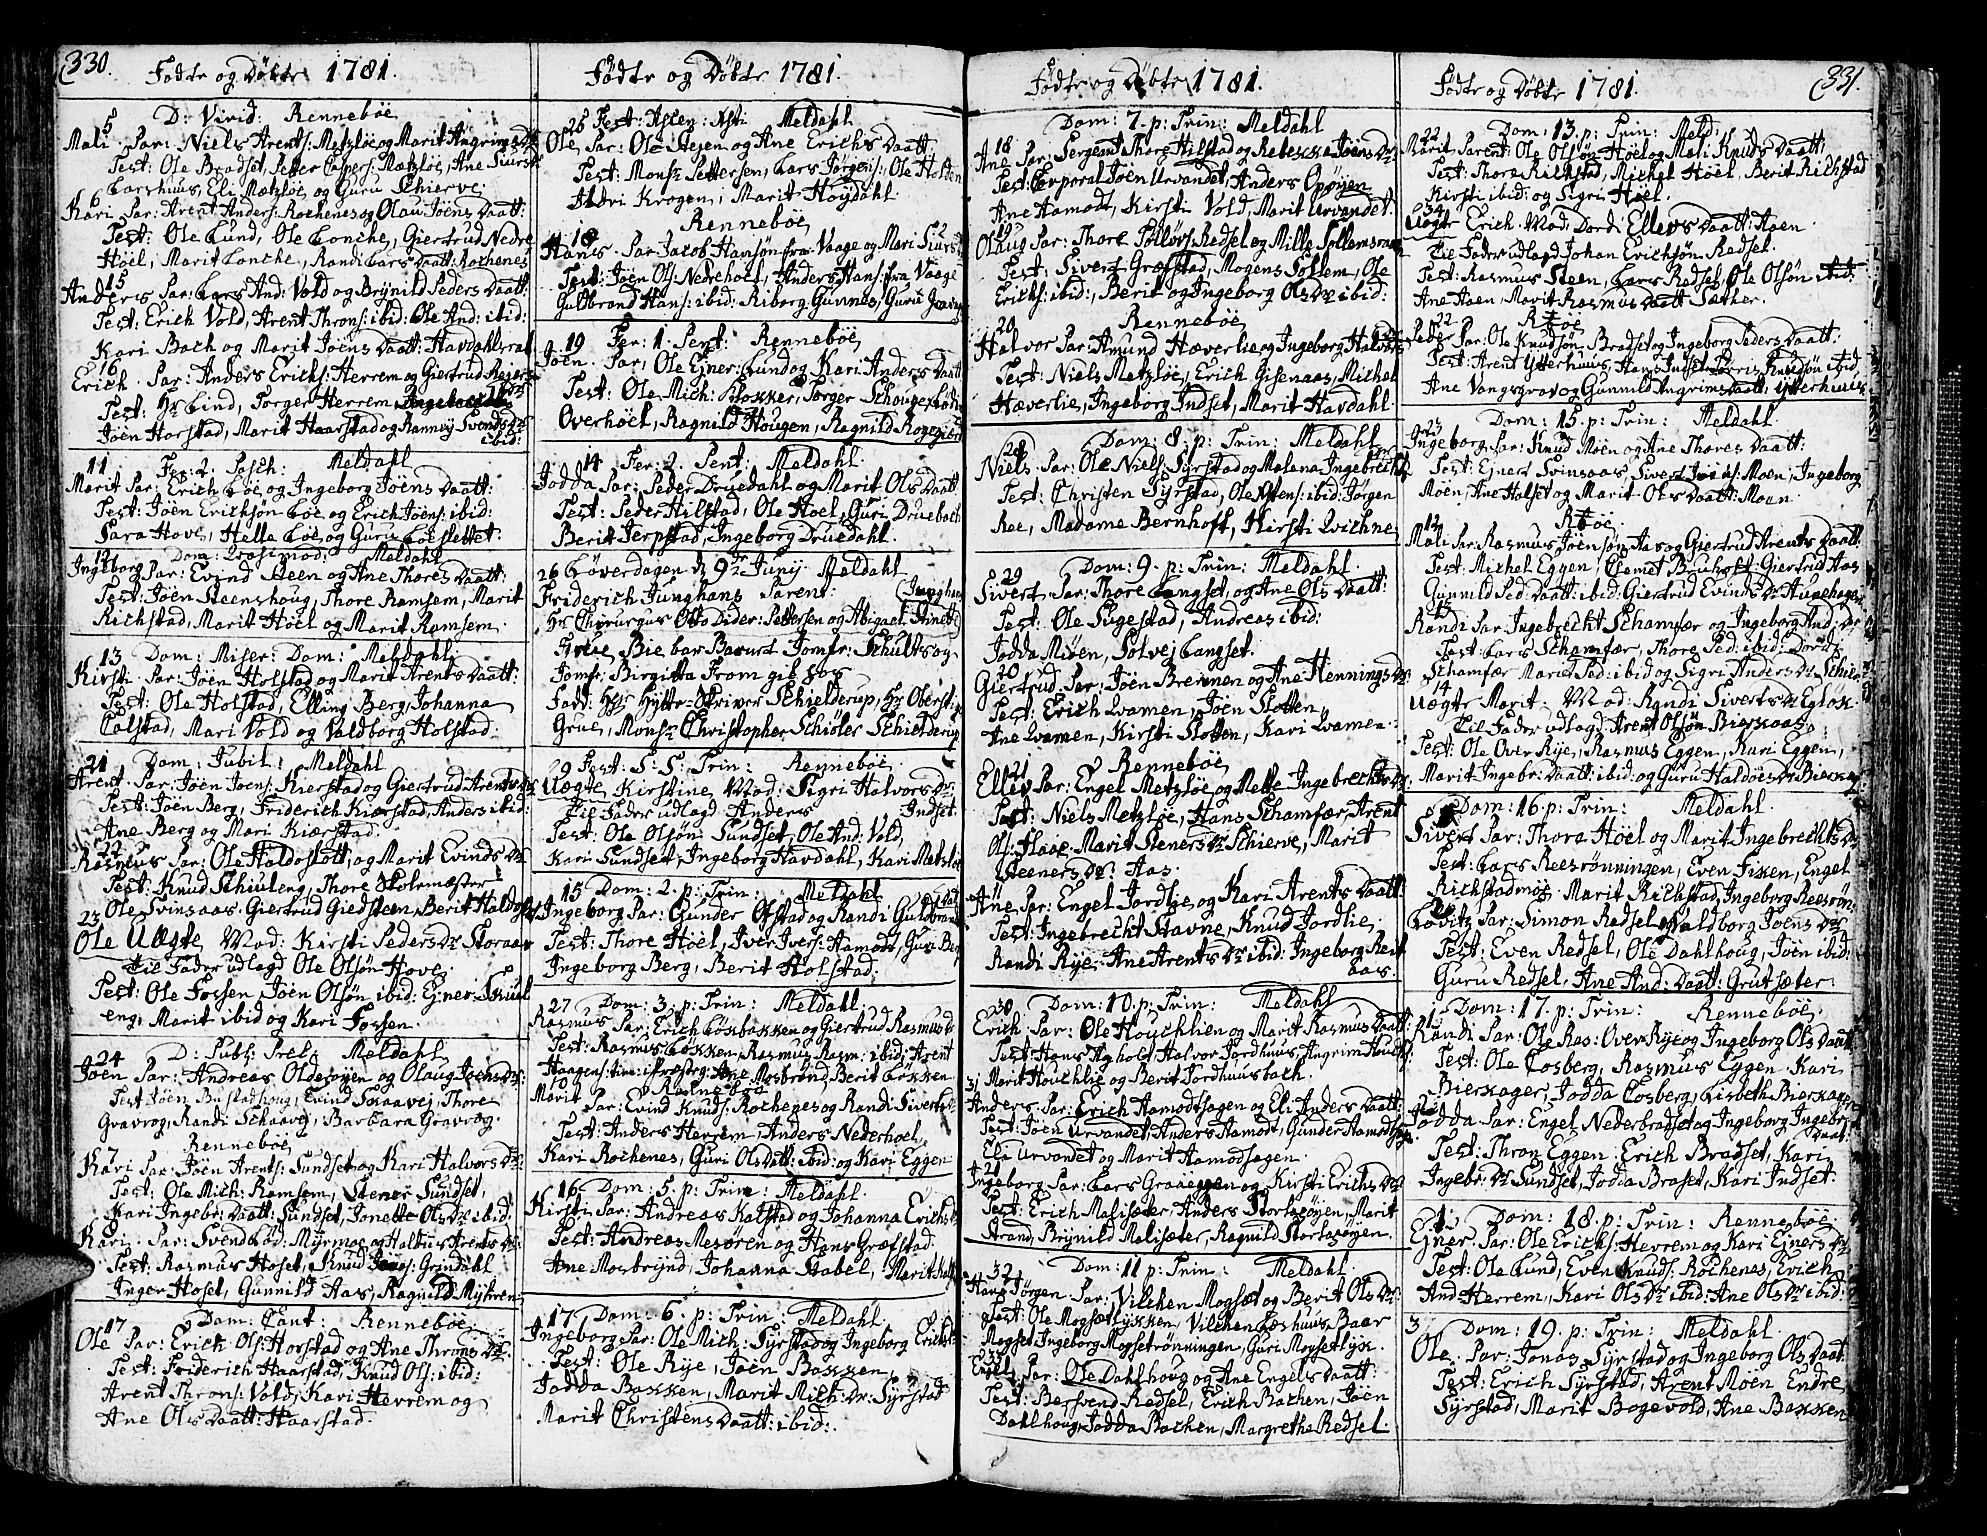 330.
Fødte og Døbte 1781.
D: Virid: Renneböe
5
Mali Par: Niels Arents: Metzlöe og Marit Angrims Dr
Test: Ole Bradset, Petter Caspers: Metzlöe, Ane Siurs
Larshuus, Eli Metzlöe og Guru Schierve.
6
Kari Par: Arent Anders: Rochenes og Olau Joens Daatt:
Test: Ole Lund, Ole Lonche, Giertrud Nedre
Höel, Marit Lonche, Randi Lars Daatt: Rochenes
15
Anders Par: Lars And: Vold og Brynild Peders Daatt:
Test: Erich Vold, Arent Throns: ibid: Ole And: ibid:
Kari Bach og Marit Joens Daatt: Havdahlsvat
16
Erich Par: Anders Erichs: Herrem og Giertrud
Test: Hr Lind, Torger Herrem
Joen Horstad, Marit Haarstad og Rannei Svends Dr
ibid:
Fer: 2. Pasch: Meldahl
11
Marit Par: Erich Löe og Ingeborg Joens Daatt:
Test: Joen Erichsön Löe og Erich Joens: ibid:
Sara Hove, Helle Löe og Guru Löeslettet.
Dom: Qvasimod: Meldahl
12
Ingeborg Par: Evind Steen og Ane Thores Daatt:
Test: Joen Steenshoug, Thore Ramsem, Marit
Richstad, Marit Höel og Marit Ramsem.
13 Dom: Miser: Dom: Meldahl
Kirsti Par: Joen Holstad og Marit Arents Daatt:
Test: Ole Holstad, Elling Berg, Johanna
Calstad, Mari Vold og Valdborg Holstad.
21 Dom: Jubil: Meldahl
Arent Par: Joen Joens: Kierstad og Giertrud Arents Dr
Test: Joen Berg, Friderich Kiærstad, Anders ibid:
Ane Berg og Mari Kiærstad.
22
Rasmus Par: Ole Haldosslött og Marit Evinds Dr
Test: Knud Schiuleng, Thore Skolemæster
Ole Svinsaas, Giertrud Giedsteen, Berit Haldoss
23
Ole Uægte Mod: Kirsti Peders Dr Storaas
til Fader udlagd Ole Olsön Hove.
Test: Ole Fossen, Joen Olsön ibid: Ejner Skul
eng, Marit ibid og Kari Fossen.
24 D: Publ: Prel: Meldahl
Joen Par: Andreas Oldesöyen og Olaug Joens Dr:
Test: Joen Bustadhoug, Evind Skaavej, Thore
Gravrog, Randi Schaavej, Barbara Gravrog.
Rennebøe
7
Kari Par: Joen Arents: Sundset og Kari Halvors Dr:
Test: Ole Mich: Ramsem, Stener Sundset,
Kari Ingebr: Daatt: Sundset, Jonette Ols Dr ibid:
8
Kari Par: Svend Lod: Myrmoe og Halbus Arents Dr:
Test: Rasmus Hoset, Knud Joens: Grindahl
Inger Hoset, Gunnild Aas, Ragnild Myhren
Dom: Cant: Rennebøe
17
Ole Par: Erich Ols: Horstad og Ane Throns Dr:
Test: Friderich Haarstad, Knud Ols: ibid:
Arent Throns: Vold, Kari Herrem og
Ane Ols Daatt: Haarstad.
Fødte og Døbte 1781.
25 Fest: Ascen: Xsti Meldahl
Ole Par: Ole Stesen og Ane Erichs Daatt:
Test: Monsr Pettersen, Lars Jörgens: Ole Holten
Aldri Krogen, Marit Höydahl.
Rennebøe
18
Hans Par Jacob Hansön fra Vaage og Mari Siurs Dr
Test: Joen Ols: Nedrehoel, Anders Hans: fra Vaage
Guldbrand Hans: ibid: Riborg Gunnes, Guru
19 Fer: 1. Pent: Rennebøe
Joen Par: Ole Ejner: Lund og Kari Anders Daatt:
Test: Ole Mich: Kloxker, Torger Schouge,
Overhöel, Ragnild Hougen, Ragnild
14 Fer: 2. Pent: Meldahl
Jodda Par: Peder Druedahl og Marit Ols Daatt:
Test: Peder Hilstad, Ole Höel, Guri Druebach
Berit Jerpstad, Ingeborg Druedahl.
26 Löverdagen d 9de Junij Meldahl
Friderich Junghans Parent:
Hr Chirurgus Otto Dider: Pettersen og Abigael Anette Junghans
Frue Bie bar Barnet Jomfr: Schults og
Jomfr: Birgitta From gik hos
Fadd: Hr Hytte-Skriver Schielderup, Hr Oberst:
Grue, Monsr Christopher Schiöler Schielderup
29 Fest: S: S: Trin: Rennebøe
Uægte Kirstine Mod: Sigri Halvors Dr:
Til Fader udlagd Anders Indset.
Test: Ole Olsön: Sundset, Ole And: Vold,
Kari Sundset, Ingeborg Havdahl, Kari Metzlöe
15 Dom: 2. p: Trin: Meldahl
Ingeborg Par: Gunder Ofstad og Randi Guldbrands Dat.
Test: Thore Höel, Iver Ivers: Aamodt, Guru Berg
Ingeborg Berg, Berit Holstad.
27 Dom: 3. p: Trin: Meldahl
Rasmus Par: Erich Löxbaxken og Giertrud Rasmus Dr
Test: Rasmus Löxken, Rasmus Rasm: ibid: Arent
Haagens: Ane Mosbrönd, Berit Löxken
10 Rennebøe
Marit Par: Evind Knuds: Rochenes og Randi Siverts Dr
Test: Anders Herrem, Anders Nederhoel,
Kari Rochenes, Guri Ols Datt: ibid: og Kari Eggen
16 Dom: 5. p: Trin: Meldahl.
Kirsti Par: Andreas Kalstad og Johanna Erichs Dr
Test: Andreas Mesören og Hans Græfstad
Ane Mosbrynd, Johanna Stabel, Marit
17 Dom: 6. p: Trin: Meldahl.
Ingeborg Par: Ole Mich: Syrstad og Ingeborg Erichs Dr
Test: Ole Rye, Joen Boxken,
Jodda Boxken, Marit Mich: Dr: Syrstad
Marit Christens Daatt: ibid:
Fødte og Døbte 1781.
Dom: 7. p: Trin: Meldahl
18
Ane Par: Sergent Thore Hilstad og Rebekke Joens Dr
Test: Corporal Joen Urvandet, Anders Opöyen
Ane Aamodt, Kirsti Vold, Marit Urvandet.
19
Olaug Par: Thore Tollövs: Redsel og Mille Sollemsvaen
Test: Sivert Græfstad, Mogens Sollem, Ole
Erichs: ibid:, Berit og Ingeborg Ols Dr ibid:
20 Rennebøe
Halvor Par: Amund Hæverlie og Ingeborg Halvors Dr
Test: Niels Metzlöe, Erich Gisenaas, Michel
Hæverlie, Ingeborg Indset, Marit Havdahl.
28 Dom: 8. p: Trin: Meldahl
Niels Par: Ole Niels: Syrstad og Malena Ingebrechts
Test: Christen Syrstad, Ole Ostens: ibid: Jörgen
Ree, Madame Bernhoft, Kirsti Qvichne
Dom: 9. p: Trin: Meldahl
29
Sivert Par: Thore Langset, og Ane Ols Daatt:
Test: Ole Sugestad, Andreas ibid:
Jodda Möen, Solvej Langset.
20
Giertrud Par: Joen Bremnen og Ane Hennings Dr:
Test: Erich Qvamen, Joen Slotten
Ane Qvamen, Kirsti Slotten, Kari Qvamen.
21 Rennebøe
Ellev Par: Engel Metzlöe og Mette Ingebrechts Dr:
Test: Niels Metzlöe, Hans Schamfær, Arent
Ols: Haae: Marit Steners Dr Schierve, Marit
Steners Dr: Aas.
Ane Par: Engel Jordlie, og Kari Arents Daatt:
Test: Ingebrecht Stavne, Knud Jordlie,
Randi Rye, Ane Arents Dr ibid: Ingeborg Reit
aas.
30 Dom: 10. p: Trin: Meldahl
Erich Par: Ole Houchlien og Marit Rasmus Daatt:
Test: Hans Agholt, Halvor Jordhuus, Angrim Houchl:
Marit Houchlie og Berit Jordhuusbach.
31
Anders Par: Erich Aamodtsagen og Eli Anders Daatt:
Test: Joen Urvandet, Anders Aamodt, Gunder Aamodtsagen
Eli Urvandet og Marit Aamodsagen.
21
Ingeborg Par: Lars Graaeggen og Kirsti Erichs Dr
Test: Erich Malisæter, Anders Storlasöyen, Marit
Strand, Brynild Malisæter, Ragnild Storlasöyen.
32 Dom: 11 p: Trin: Meldahl.
Hans Jörgen Par: Vilchen Mogset og Berit Ols Dr:
Test: Ole Mogsetlykken, Vilchen Løshuus, Baar
Mogset, Ingeborg Mogsetrönningen, Guri Mogsetlyk.
33
Engel Par: Ole Dahlhoug og Ane Engels Daatt:
Test: Bersvend Redsel, Erich Rochen, Joen
Dahlhoug, Jodda Bachen, Margrethe Redsel.
Fødte og Døbte 1781.
331.
22 Dom: 13. p: Trin: Meld:
Marit Parent: Ole Olsön Höel og Mali Knuds Daatt:
Test: Thore Richstad, Michel Höel, Berit Richstad
Kirsti ibid: og Sigri Höel.
34
Uægte Erich Mod: Dordi Ellevs Daatt: Aaen
Til Fader udlagd Johan Erichsön Redsel.
Test: Rasmus Steen, Lars Redsel, Ole Olsön ibid:
Ane Aaen, Marit Rasmus Daatt Sæther.
22 Rböe
Peder Par: Ole Knudsön Bradset og Ingeborg Peders Daatt:
Test: Arent Ytterhuus, Hans Indset, Knudsön ibid,
Ane Vangsgrav og Gunnild Angrims Daatt: Ytterhuus
Dom: 15. p: Trin: Meldahl.
23
Ingeborg Par: Knud Möen og Ane Thores Daatt:
Test: Ejner Svinsaas, Sivert Moen, Ingeborg
Möen, Ane Holset og Marit Ols Daatt: Moen.
12 Rböe
Mali Par: Rasmus Joensön Aas og Giertrud Arents Daatt:
Test: Michel Eggen, Clemet Giertrud Aas
Gunnild Ped: Daatt: ibid: Giertrud Evinds Dr Hupehagen
13
Randi Par: Ingebrecht Schamfær og Ingeborg And: Dr
Test: Lars Schamfær, Thore Ped: ibid: Dordi
Schamfær Marit Ped: ibid og Sigri Anders Dr
14
Uægte Marit Mod: Randi Siverts Dr
Til Fader udlagd: Arent Olsön Bierkaas.
Test: Ole Over Rye, Rasmus Eggen, Kari Eggen,
Marit Ingebr: Daatt: ibid: og Guru Haldoes Dr
Dom: 16. p: Trin: Meldahl
Sivert Par: Thore Höel og Marit Ingebrechts Dr
Test: Lars Reesrönningen, Even Fixken, Engel
Richstadmöe. Marit Richstad, Ingeborg Reesrön
Lovitz Par: Simon Redsel og Valdborg Joens Dr
Test: Even Redsel, Ole Dahlhoug, Joen ibid:
Guru Redsel, Ane And: Daatt: Grutsæter.
1 Dom: 17. p: Trin: Rennebøe
Randi Par: Ole Ras: Over Rye og Ingeborg Ols Daatt
Test: Ole Cosberg, Rasmus Eggen. Kari
Bierkager, Jodda Cosberg, Lisbeth Bierkager
2
Jodda Par: Engel Nederbradset og Ingeborg Ingebr:
Daatt:
Test: Thron Eggen, Erich Bradset, Kari
Ingebr: Dr Sundset, Jodda Braset, Kari Indset.
1 Dom: 18. p: Trin: Rennebøe.
Ejner Par: Ole Erichs: Herrem og Kari Ejners Dr
Test: Ole Lund, Even Knuds: Rochenes, Erich
And: Herrem, Kari Ols Dr ibid: Ane Ols Dr ibid:
3 Dom: 19. p: Trin: Meldahl.
Ole Par: Jonas Syrstad og Ingeborg Ols Daatt:
Test: Erich Syrstad, Arent Möen, Endre
Syrstad, Marit Bogevold, Ane Baxken